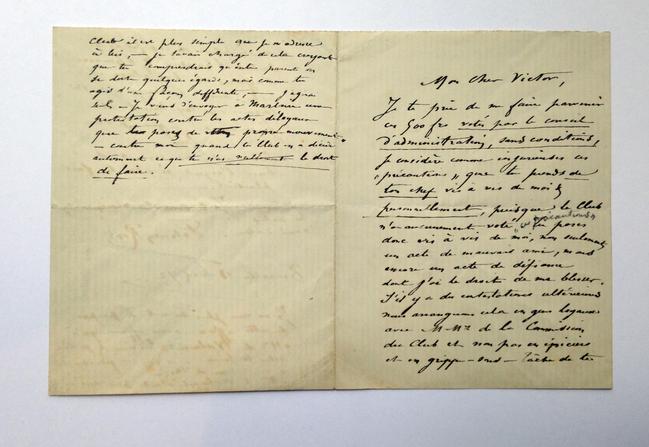 Mon Cher Victor,
Je te prie de me faire parvenir
ces 500 frs votés par le conseil
d'administration, sans conditions,
je considère comme injurieuses ces
"précautions" que tu prends de
ton chef vis à vis de moi &
personnellement, puisque le Club
n'a aucunement voté "ces précautions"
Tu poses
donc vis à vis de moi, non seulement
un acte de mauvais ami, mais
encore un acte de défiance
dont j'ai le droit de me blesser.
S'il y a des contestations ultérieures
nous arrangerons cela en gens
avec MMrs de la Commission
du Club et non pas en épiciers
et en grippe-sous - tâche de te
Club il est plus simple que je m'adresse
à toi, - je t'avais chargé de cela croyant
que tu comprendrais qu'entre parents on
se doit quelques égards, mais comme tu
agis d'un façon différente, - j'agirai
seul - Je viens d'envoyer à une
protestation contre les actes
que tu poses de ton propre mouvement
- contre moi quand le Club n'a décidé
autrement ce que tu n'as nullement le droit
de faire.